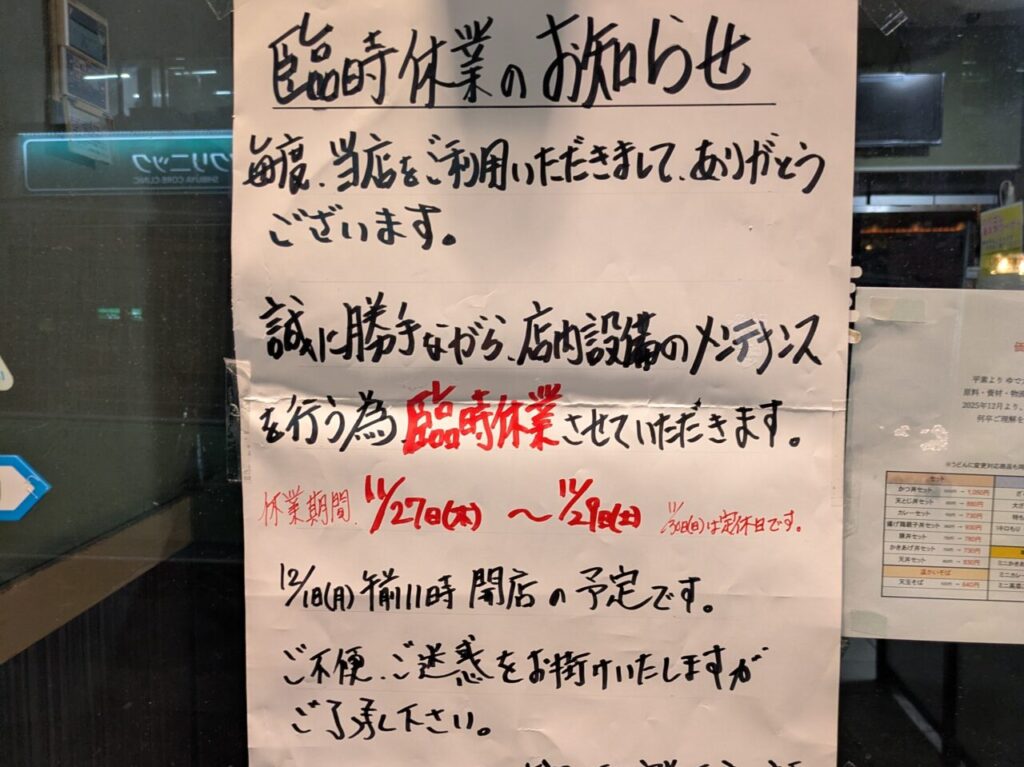 臨時休業のお知らせ
毎度、当店をご利用いただきまして、ありがとう
ございます。
誠に勝手ながら、店内設備のメンテナンス
を行う為 臨時休業させていただきます。
休業期間 11/27日(木) 〜 11/29日(土) 11/30(日)は定休日です。
12/1日(月) 午前11時 開店の予定です。
ご不便、ご迷惑をお掛けいたしますが
ご了承下さい。
クリニック
SHIBUYA CORE CLINIC
価
平素より ゆで
原料・資材・物流
2025年12月より、
何卒ご理解を
※うどんに変更対応商品も同
セット
かつ丼セット → 1,050円
天とじ丼セット
カレーセット
揚げ鶏親子丼セット
豚丼セット → 780円
かきあげ丼セット → 730円
天丼セット
温かいそば
天玉そば → 640円